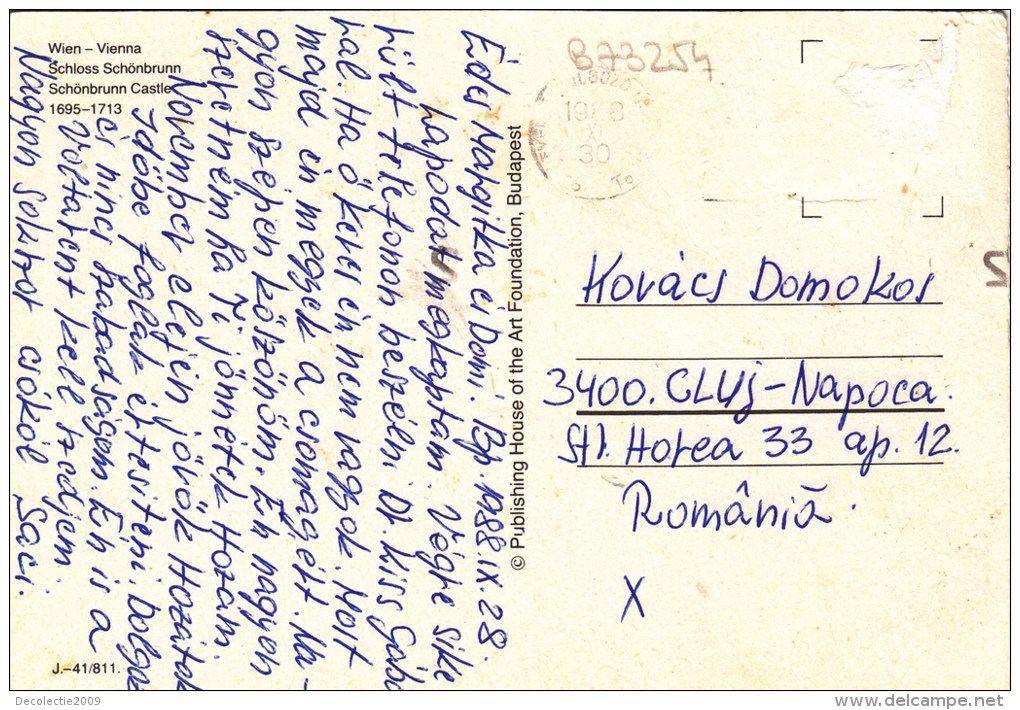 Wien – Vienna
Schloss Schönbrunn
Schönbrunn Castle
1695–1713
Édes Margitka és Domi. Bp 1988.IX.28.
Lapodat megkaptam. Végre sike
rült telefonon beszélni Dr. Kiss Gábo
hal. Ha ő keres én nem vagyok. Most
majd én megyek a csomagért. Na-
gyon szépen köszönöm. Én nagyon
szeretném ha Ti jönnétek Hozám
November elején jövök Hozátok
időbe foglak értesíteni. Dolgoz
és nincs szabadságom. Én is a
Voltarent kell szedjem.
Nagyon Sokszor csókol Saci.
J.–41/811.
© Publishing House of the Art Foundation, Budapest
B73254
1988
XI
30
Kovács Domokos
3400. CLUj-Napoca.
Str. Horea 33 ap. 12.
România.
X
Decolectie2009
delcampe.net